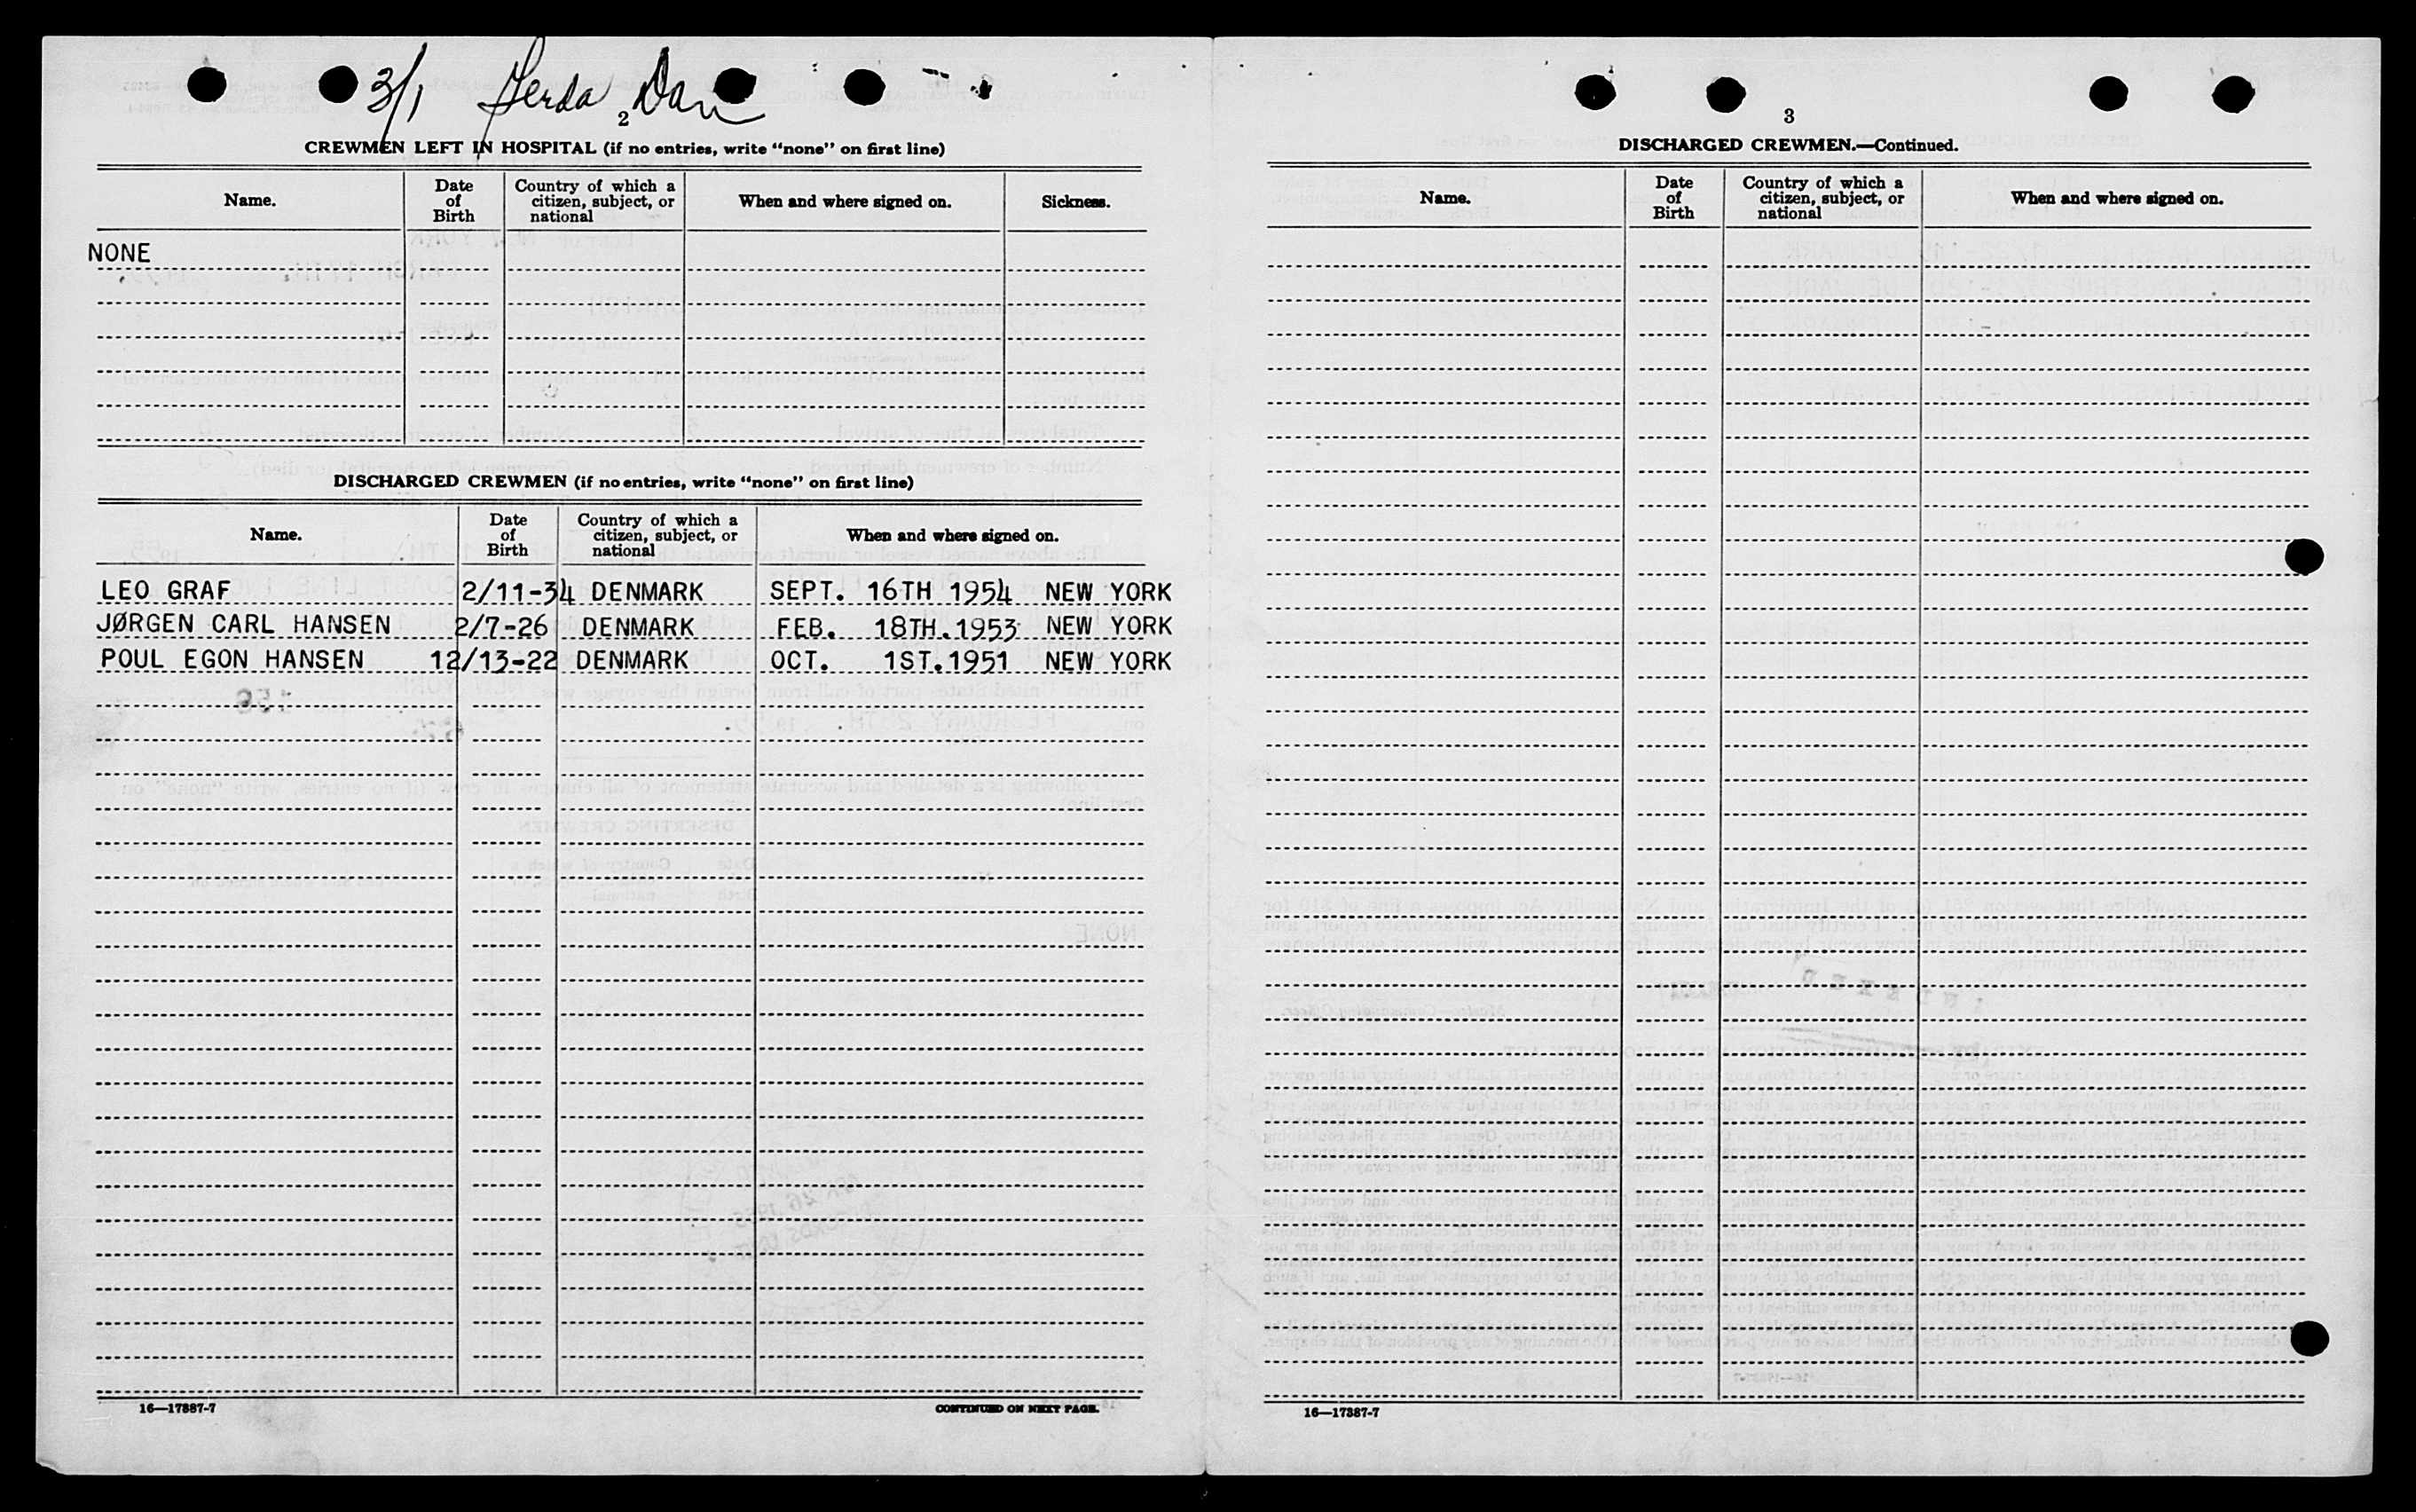 3/1 Gerda Dan
2
CREWMEN LEFT IN HOSPITAL (if no entries, write "none" on first line)
Name. Date of Birth Country of which a citizen, subject, or national When and where signed on. Sickness.
NONE
DISCHARGED CREWMEN (if no entries, write "none" on first line)
Name. Date of Birth Country of which a citizen, subject, or national When and where signed on.
LEO GRAF 2/11-34 DENMARK SEPT. 16TH 1954 NEW YORK
JØRGEN CARL HANSEN 2/7-26 DENMARK FEB. 18TH.1953 NEW YORK
POUL EGON HANSEN 12/13-22 DENMARK OCT. 1ST.1951 NEW YORK
16—17887-7 CONTINUED ON NEXT PAGE.
3
DISCHARGED CREWMEN.—Continued.
Name. Date of Birth Country of which a citizen, subject, or national When and where signed on.
16—17887-7